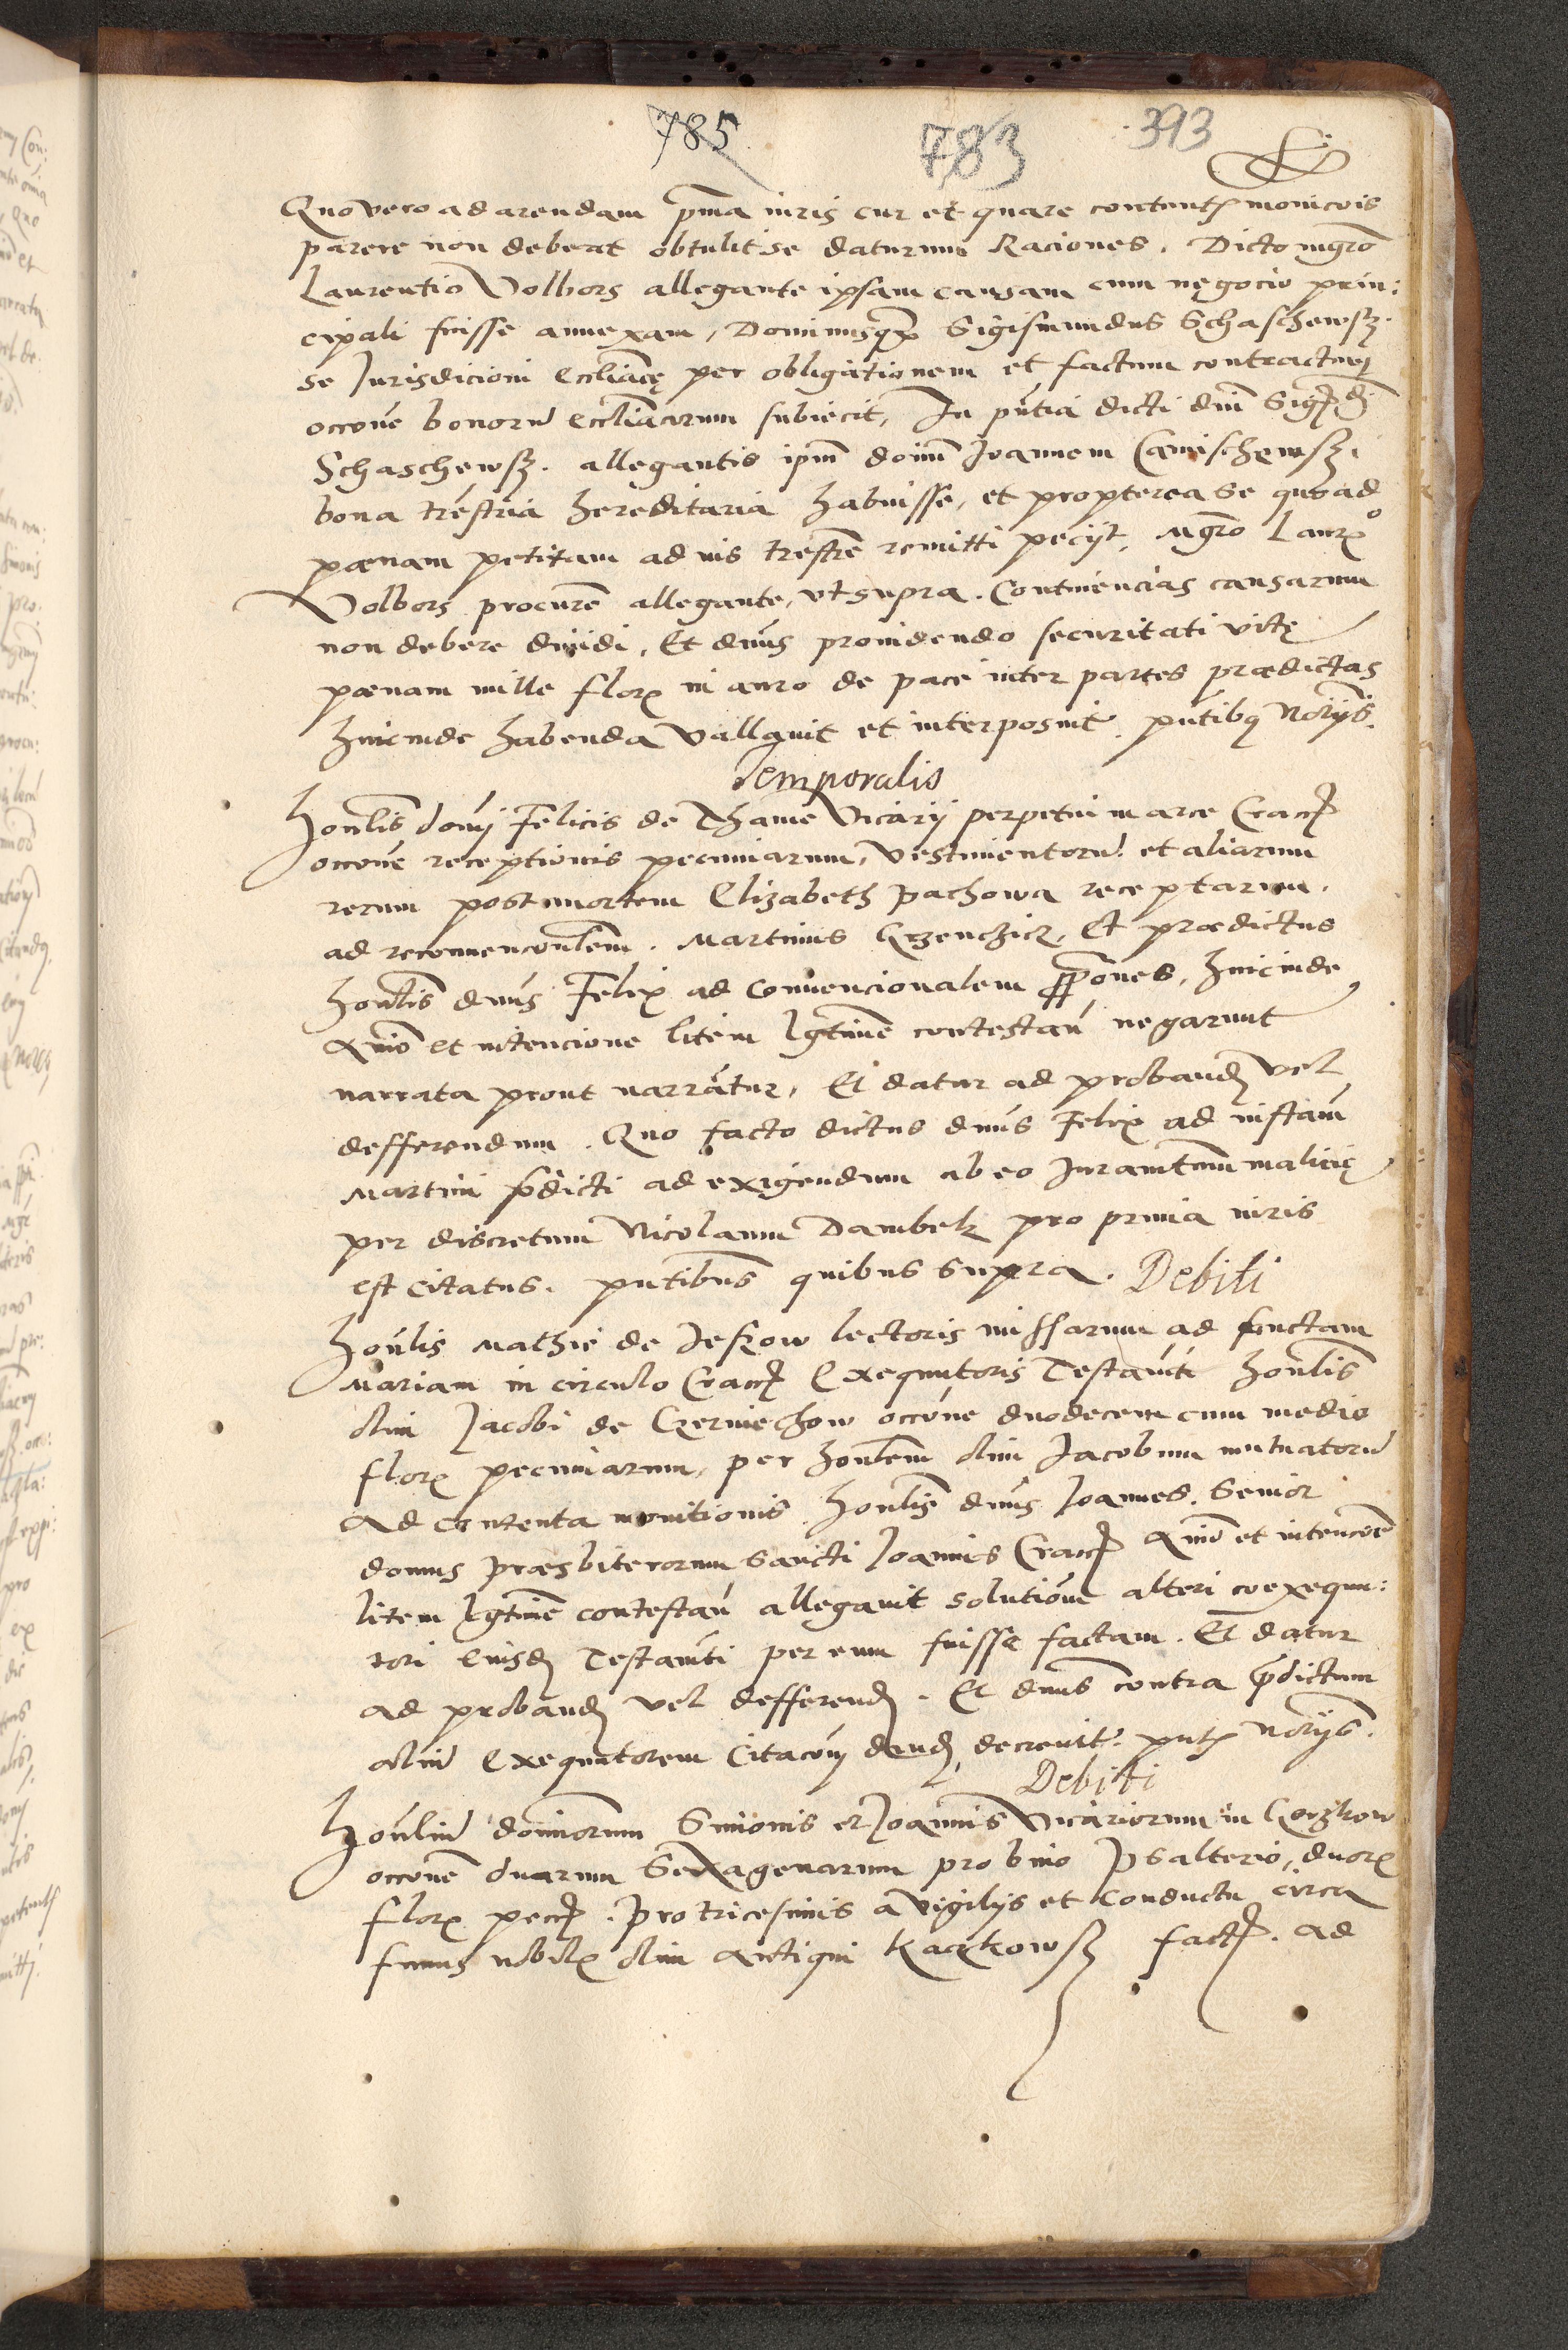 785 783 393
Quo vero ad arendam pma iuris cur et quare content monicois
parere non deberet obtulit se daturum Raciones. Dicto mgro
Laurentio Volbors allegante ipsam causam cum negocio prin:
cipali fuisse annexam, Dominusq Sigismundus Schaschewsz.
se Jurisdicioni eccliace per obligationem et factum contractum
occone bonoru eccliacarum subiecit, In pntia dicti dni Sigdi
Schaschewsz. allegantis ipm doim Joannem Camischewsz.
bona trestria hereditaria habuisse, et propterea se quo ad
pænam petitam ad ius trestre remitti peciit, Mgro Laur
Volbors procure allegante, vt supra. Continencias causarum
non debere diuidi, Et dnus prouidendo securitati vite
pænam mille flor in auro de pace inter partes prædictas
hincinde habenda vallauit et interposuit. pntibq Norijs.
Temporalis
Honlis doni Felicis de Thame Vicarij perpetui in arce Crac
occone receptionis pecuniarum, Vestimentoru et aliarum
rerum post mortem Elizabeth Pachowa receptarum.
ad reconuenconlem. Martinus Krzenchick, Et prædictus
Honlis dnus Felix ad Conuencionalem ppones, hincinde
Animo et intencione litem lgtime contestan negarunt
narrata prout narrantur, Et datur ad proband vel
defferendum. Quo facto dictus dnus Felix ad instam
Martini pdicti ad exigendum ab eo Juramtum malicie
per discretum Nicolaum Dambek pro prima iuris
est citatus. pntibus quibus supra. Debiti
Honlis Mathie de Jeskow lectoris missarum ad sanctam
Mariam in circulo Crac Exequutoris Testamti Honlis
olim Jacobi de Czerniechow occone duodecem cum medio
flor pecuniarum, per honlem olim Jacobum mutuatoru
ad contenta monitionis. Honlis dnus Joannes. Senior
domus Præsbiterorum Sancti Joannis Crac Animo et intencoe
litem lgtime contestan allegauit solutione alteri coexequu:
tori Eiusd Testamti per eum fuisse factam. Et datur
ad proband vel defferend. Et dnus contra pdictum
aliu Exequutorem Citacom dand decreuit. pnt Norijs.
Debiti
Honliu dominorum Simonis et Joannis Vicariorum in Gorzkow
occone duarum Sexagenarum pro bino Psalterio, duor
flor pecc. Pro tricesimis a vigilijs et Conductu circa
funus nobil olim Kaczkowsz fact. ad